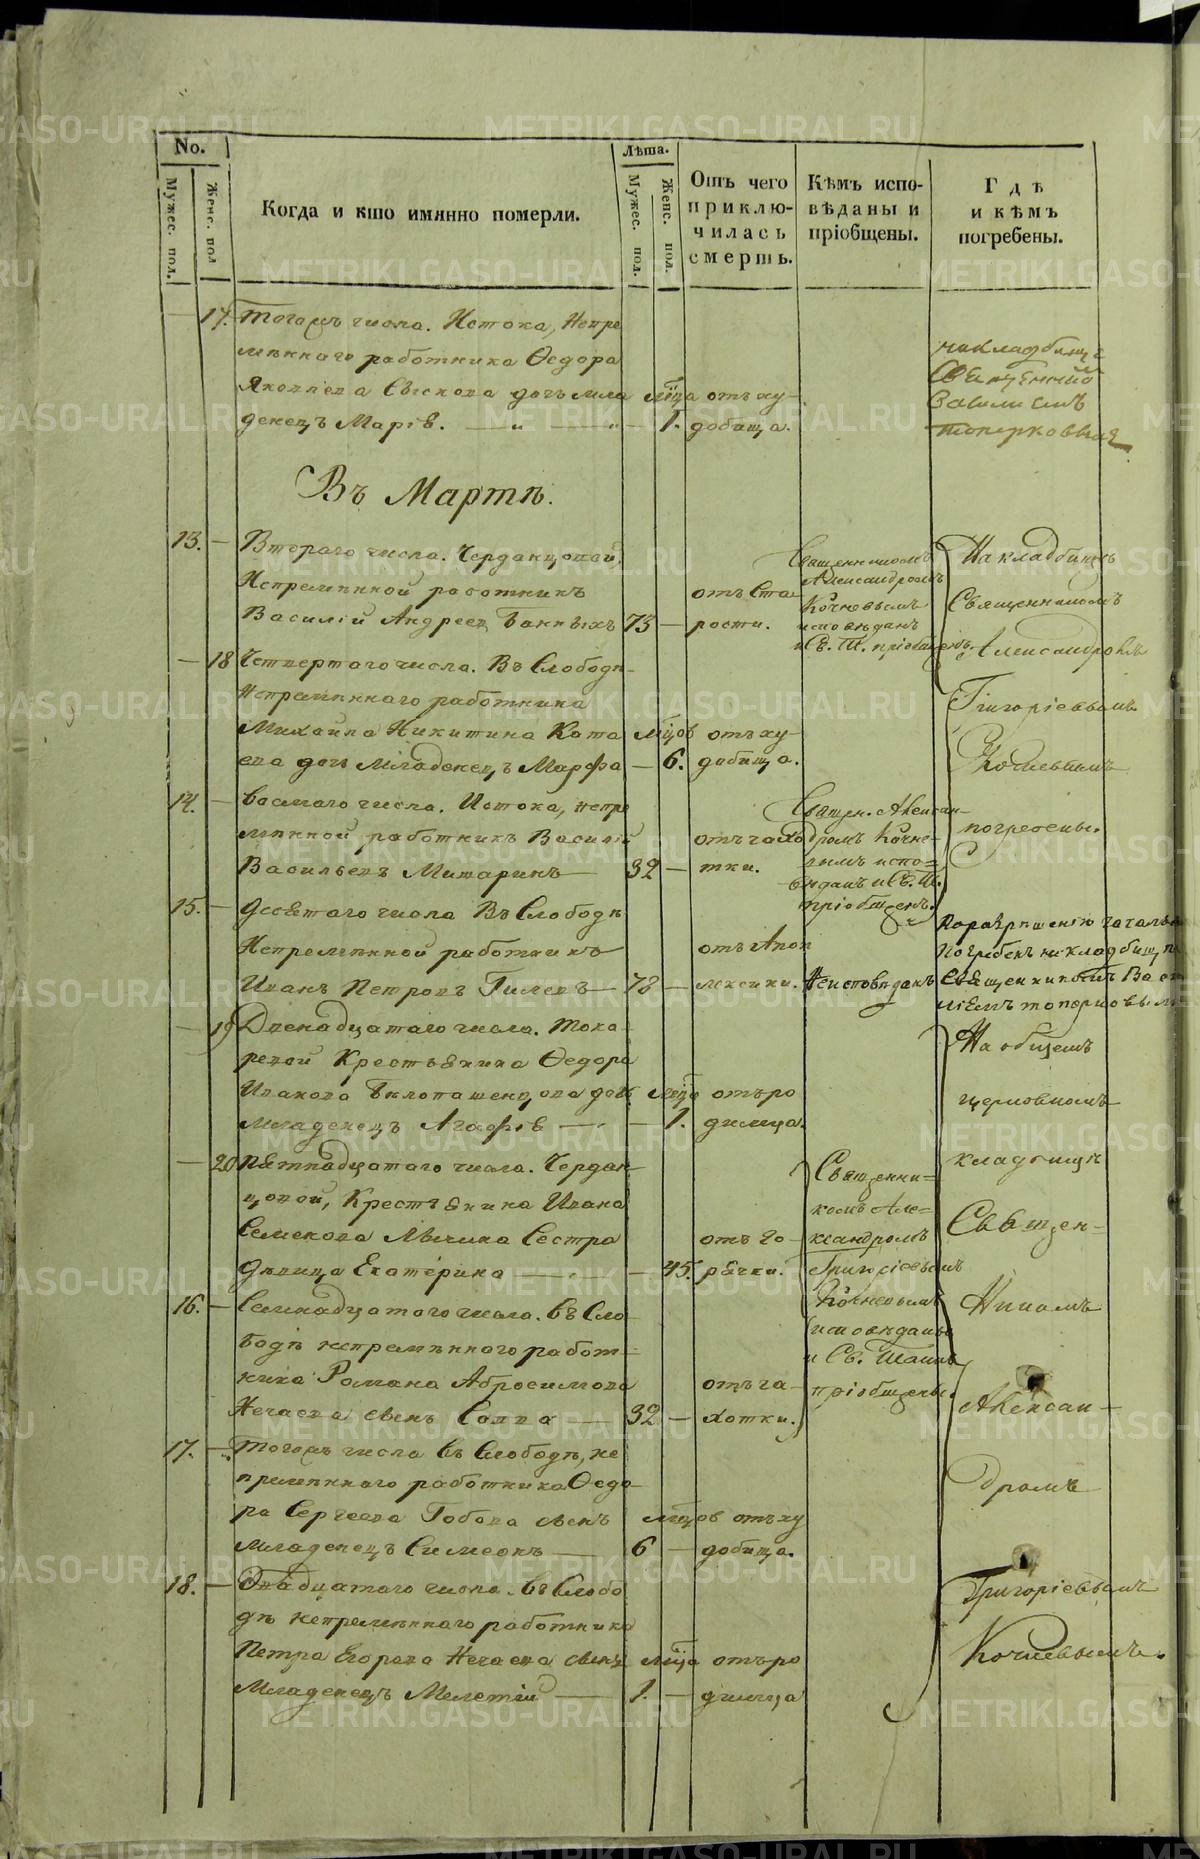 No.
Мужес. пол.
Женс. пол
Когда и кто имянно померли.
Лѣта.
Мужес. пол.
Женс. пол.
Отъ чего
приклю-
чилась
смерть.
Кѣмъ испо-
вѣданы и
пріобщены.
Гдѣ
и кѣмъ
погребены.
17. Тогожъ числа. Истока, Непре
мѣннаго работника Ѳедора
Яковлева дочь мла мѣсца отъ ху-
денецъ Марія. 1. добища.
на кладбищѣ
Священник
Василиемъ
Топорковым
Въ Мартѣ.
13. Втораго числа. Черданцовой,
Непремѣнной работникъ
Василій Андреев Банныхъ 73 отъ Ста-
рости.
Священникомъ
Александромъ
Кочневымъ
исповѣданъ
и Св. Т. пріобщенъ.
На кладбищѣ
Священникомъ
Александромъ
Григоріевымъ
Кочневымъ
погребены.
18 Четвертаго числа. Въ Слободѣ
Непремѣннаго работника
Михаила Никитина Ката мѣцов отъ ху-
ева дочь Младенецъ Марфа 6. добища.
14. Восмаго числа. Истока, непре
мѣнной работникъ Василій
Васильевъ Митаринъ 32 отъ чахо
тки.
Священ. Алексан-
дромъ Кочне-
вымъ испо-
вѣданъ и Св. Т.
пріобщенъ.
15. Десятаго числа Въ Слободѣ
Непремѣнной работникъ
Иванъ Петровъ Гилевъ 78 отъ Апоп
лексики. Неисповѣданъ
По разрѣшенію
Погребенъ на кладбищѣ
Священникомъ Васи
ліемъ Топорковым
19 Двенадцатаго числа. Тока-
ревой Крестьянина Ѳедора
Иванова Бѣлопашенцова дочь мѣсца отъ ро
Младенецъ Агафія 1. димца.
20 Пятнадцатаго числа. Чердан
цовой, Крестьянина Ивана
Семенова Сестра
дѣвица Екатерина 45. отъ го-
рячки.
Священни-
комъ Але-
ксандромъ
Григоріевымъ
Кочневымъ
исповѣданы
и Св. Таинъ
пріобщены.
На общемъ
церковномъ
кладбищѣ
Священ-
никомъ
Алексан-
дромъ
Григоріевымъ
Кочневымъ.
16. Семнадцатаго числа. Въ Сло
бодѣ непремѣннаго работ-
ника Романа Абросимова
Нечаева сынъ Савва 32 отъ ча-
хотки.
17. Тогожъ числа въ Слободѣ, не
премѣннаго работника Ѳедо-
ра Сергеева Гобова сынъ мѣцов отъ ху
Младенецъ Симеонъ 6 добища.
18. Двадцатаго числа. въ Слобо
дѣ непремѣннаго работника
Петра Егорова Нечаева сынъ мѣсца отъ ро
Младенецъ Мелетій 1. димца
METRIKI.GASO-URAL.RU